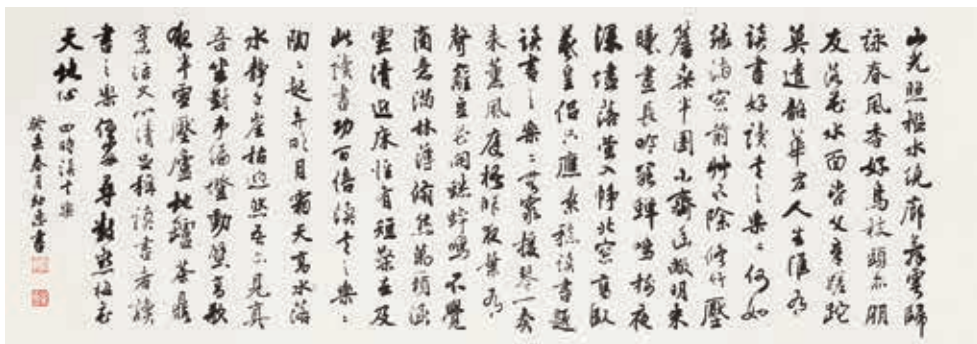 山光照檻水繞廊舞雩歸
詠春風香好鳥枝頭亦朋
友落花水面皆文章蹉跎
莫遣韶華老人生惟有
讀書好讀書之樂樂何如
緑滿窗前艸不除修竹壓
簷桑半圍小齋幽敞明朱
曦晝長吟罷蟬鳴樹夜
深燼落螢入幃北窗高臥
羲皇侶只應素稔讀書趣
讀書之樂樂無窮援琴一奏
來薰風庭梧昨夜葉有
聲籬豆花開蟋蟀鳴不覺
商意滿林薄翛然萬頃涵
靈清近床惟有短檠在及
此讀書功百倍讀書之樂樂
陶陶起弄明月霜天高水落
木靜千崖枯迥然吾亦見真
吾坐對韋編燈動壁高歌
夜半雪壓廬地爐茶鼎
烹活火心清足稱讀書者讀
書之樂何處尋數點梅花
天地心
四時讀書樂
春月書